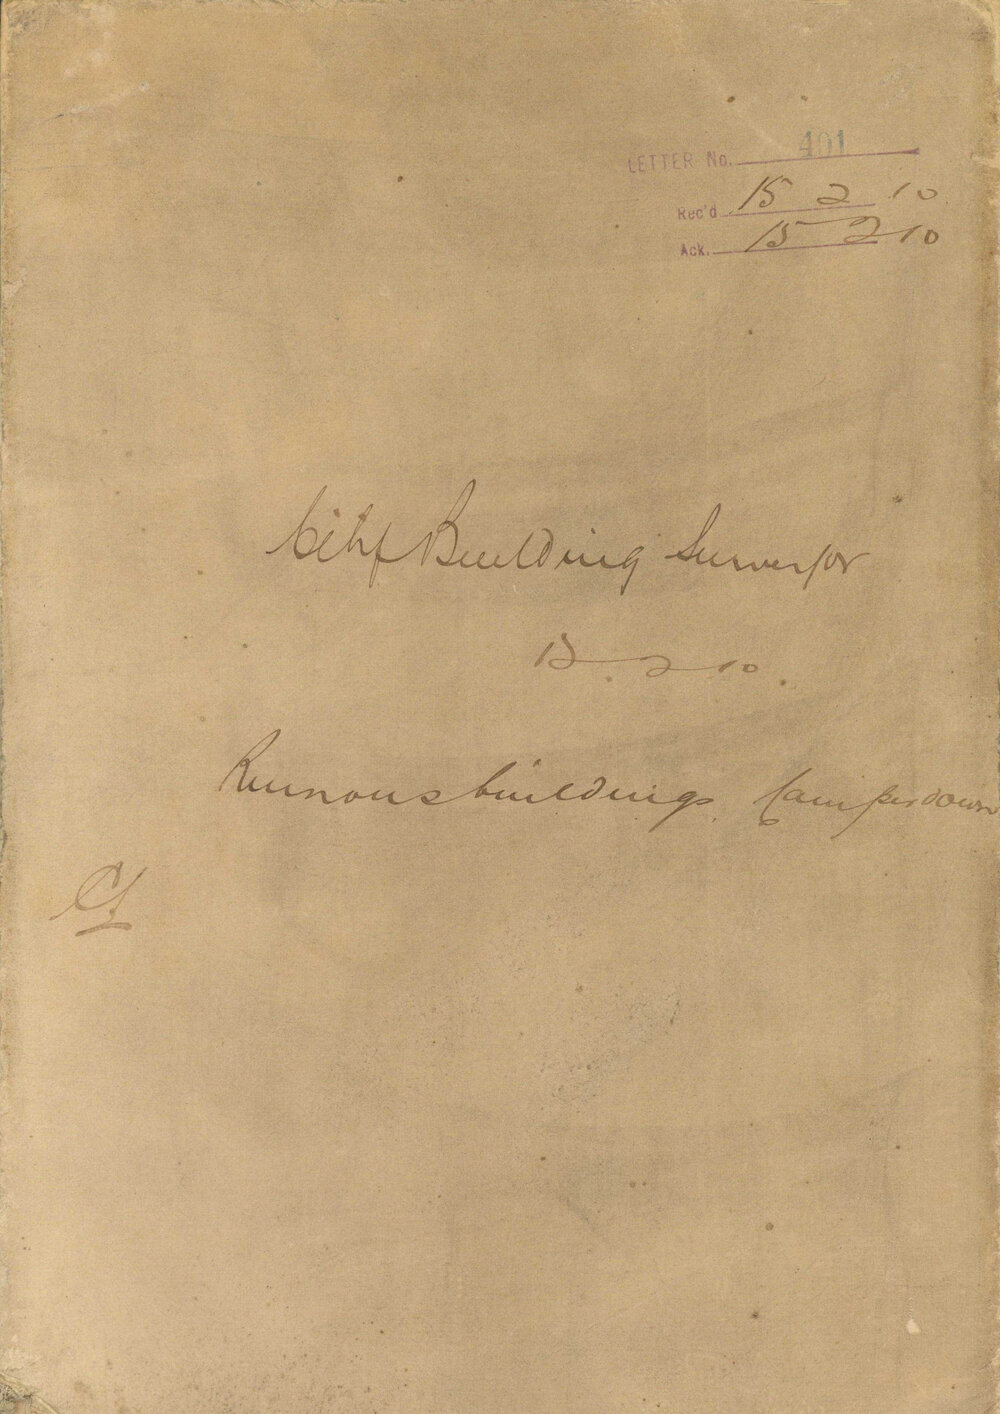 LETTER No. 401
Rec'd 15 2 10
Ack. 15 2 10
City Building Surveyor
15. 2 10.
Ruinous buildings, Camperdown